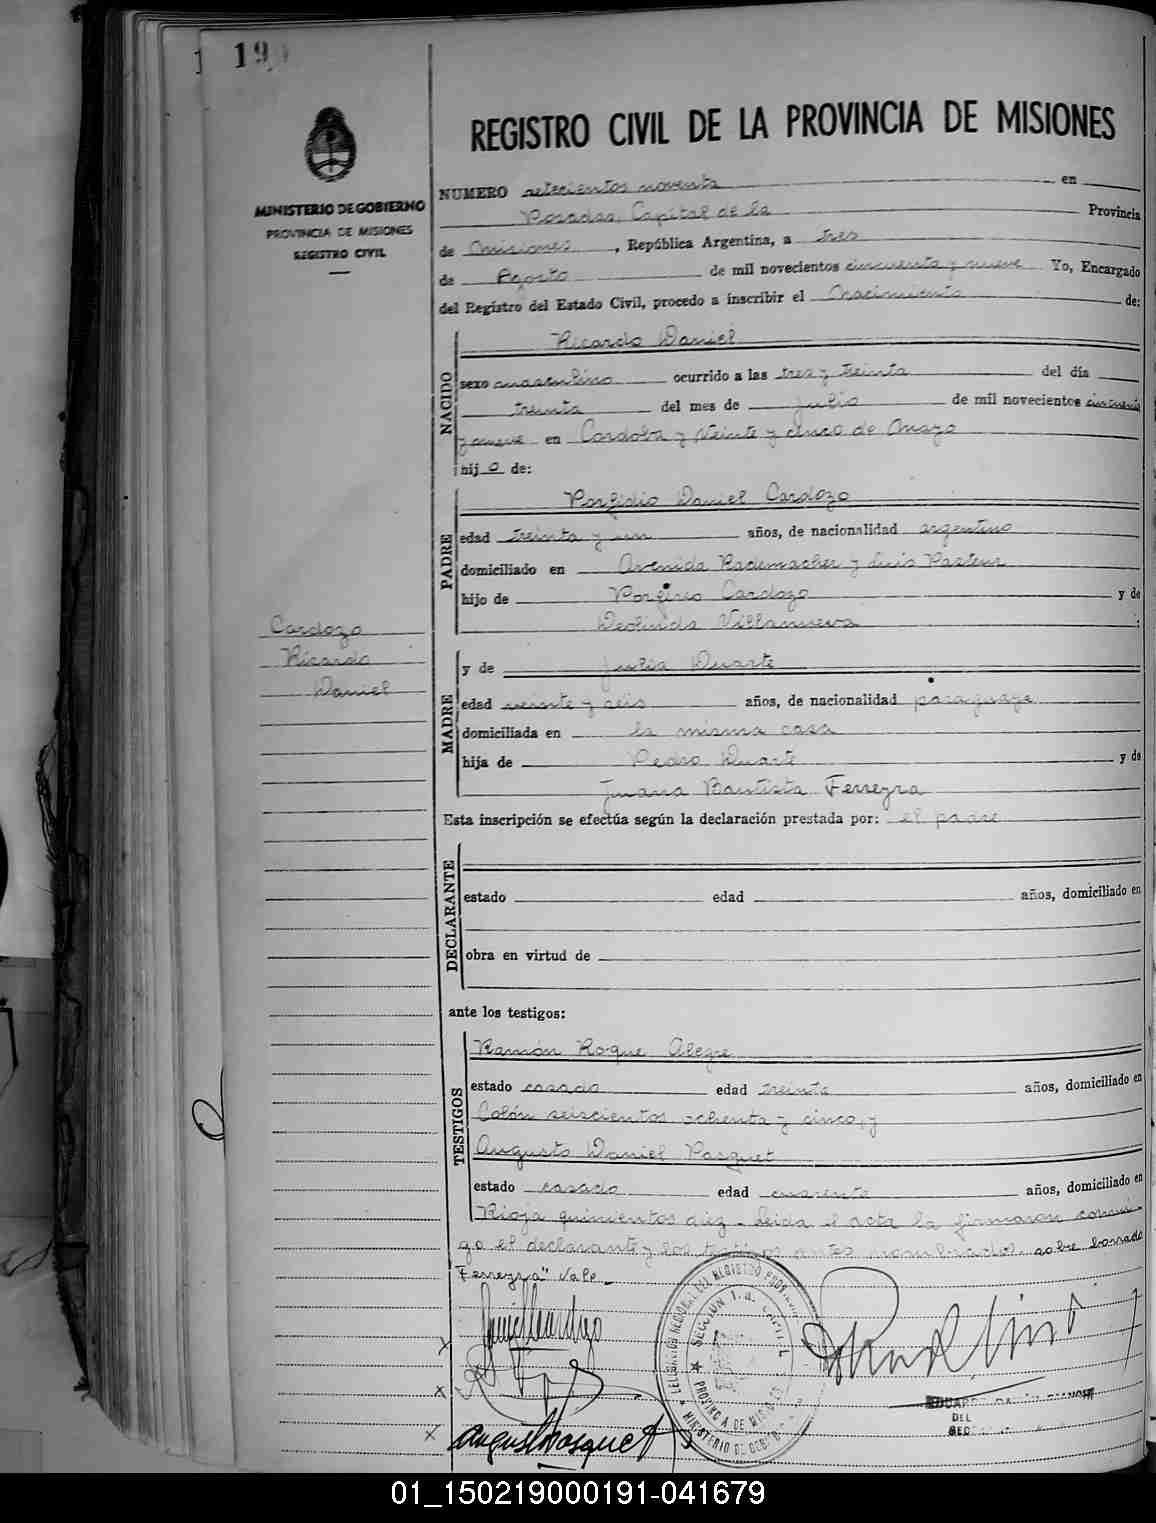 19
MINISTERIO DE GOBIERNO
PROVINCIA DE MISIONES
REGISTRO CIVIL
REGISTRO CIVIL DE LA PROVINCIA DE MISIONES
NUMERO setecientos noventa en
Posadas, Capital de la Provincia
de Misiones, República Argentina, a tres
de Agosto de mil novecientos cincuenta y nueve Yo, Encargado
del Registro del Estado Civil, procedo a inscribir el Nacimiento de:
NACIDO
Ricardo Daniel
sexo masculino ocurrido a las tres y treinta del día
treinta del mes de julio de mil novecientos cincuenta
y nueve en Cordoba y Veinte y cinco de Mayo
hijo de:
PADRE
Porfidio Daniel Cardozo
edad treinta y un años, de nacionalidad argentino
domiciliado en Avenida Rademacher y Luis Pasteur
hijo de Porfirio Cardozo y de
Deolinda Villanueva
Cardozo
Ricardo
Daniel
MADRE
y de Julia Duarte
edad veinte y seis años, de nacionalidad paraguaya
domiciliada en la misma casa
hija de Pedro Duarte y de
Juana Bautista Ferreyra
Esta inscripción se efectúa según la declaración prestada por: el padre
DECLARANTE
estado edad años, domiciliado en
obra en virtud de
ante los testigos:
TESTIGOS
Ramón Roque Alegre
estado casado edad treinta años, domiciliado en
Colón seiscientos ochenta y cinco, y
Augusto Daniel Pasquet
estado casado edad cuarenta años, domiciliado en
Rioja quinientos diez - Leida el acta la firmaron conmi-
go el declarante y los testigos antes nombrados. sobre borrado
Ferreyra" Vale_
SECCION 1.a. CAPITAL
PROVINCIA DE MISIONES
MINISTERIO DE GOBIERNO
DEL
01_150219000191-041679